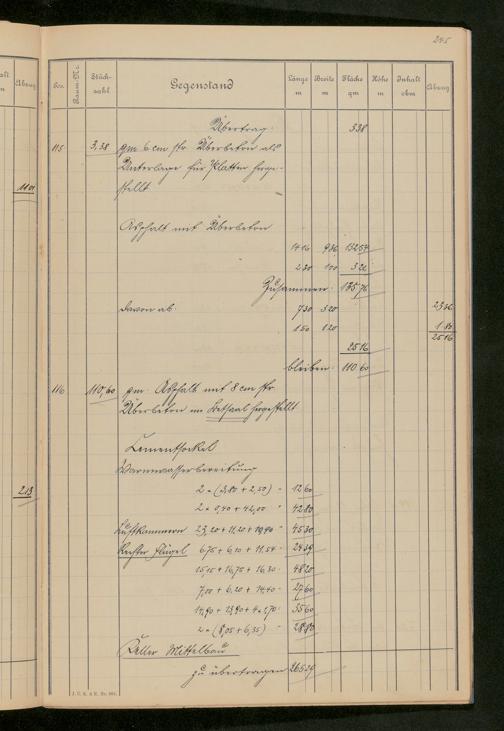 245
Pos. Raum-Nr. Stück-zahl Gegenstand Länge m Breite m Fläche qm Höhe m Inhalt cbm Abzug
Übertrag: 538
115 3,38 qm 6 cm str. Überbeton als
Unterlage für Platten herge-
stellt
1101
Asphalt mit Überbeton
1416 936 13254
230 100 322
Zusammen: 13576
davon ab: 730 320 2336
150 120 180
2516
2516
bleiben: 11060
116 110,60 qm Asphalt mit 8 cm str.
Überbeton im Betsaal hergestellt
Zementsockel
Warmwasserbereitung
213
2 × (3,80 + 2,50) = 1260
2 × 0,40 + 42,00 = 4280
Luftkammern 23,20 + 11,20 + 10,90 = 4530
Rechter Flügel 6,75 + 6,10 + 11,54 = 2439
15,15 + 16,75 + 16,30 = 4820
7,00 + 6,20 + 14,40 = 2760
3560
2 × (8,05 + 6,35) = 2880
Keller Mittelbau
zu übertragen 26529